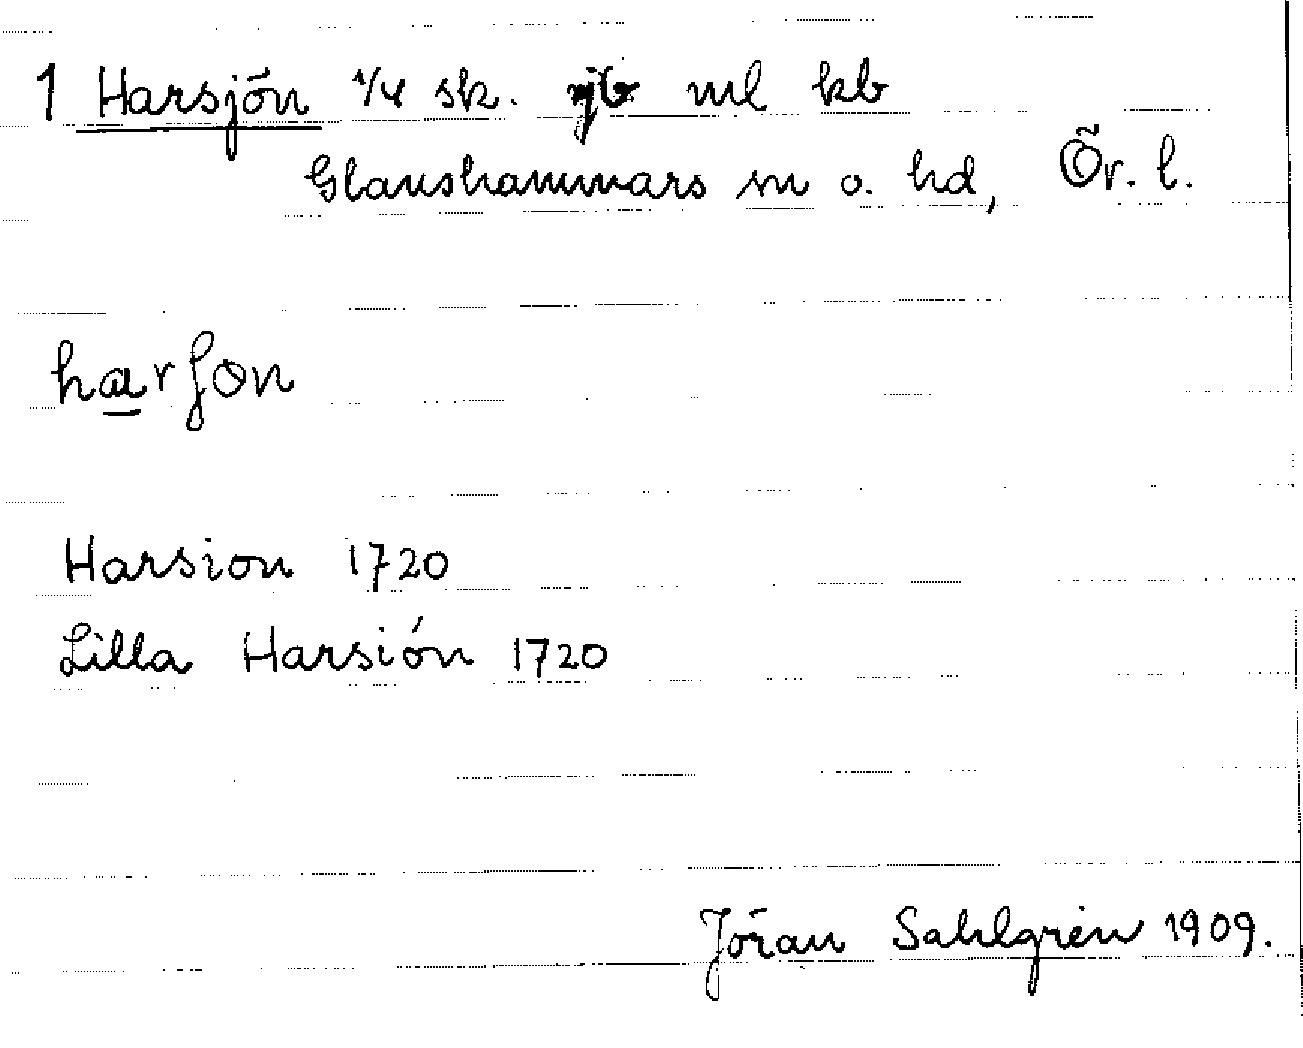 1 Harsjön 1/4 sk. ml kb
Glanshammars sn o. hd, Ör. l.
harʃon
Harsion 1720
Lilla Harsión 1720
Jöran Sahlgren 1909.